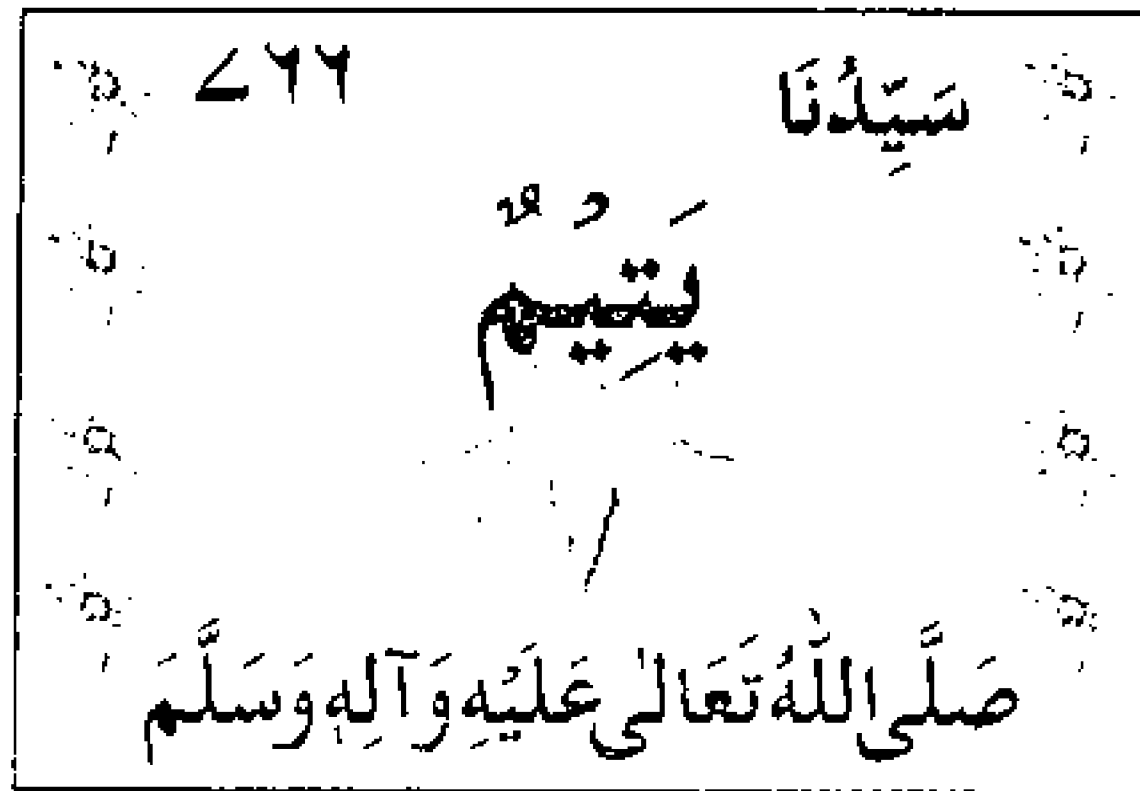 سَيِّدُنَا ۷۶۶
يَتِيْمٌ
صَلَّى اللّٰهُ تَعَالٰى عَلَيْهِ وَآلِهٖ وَسَلَّمَ